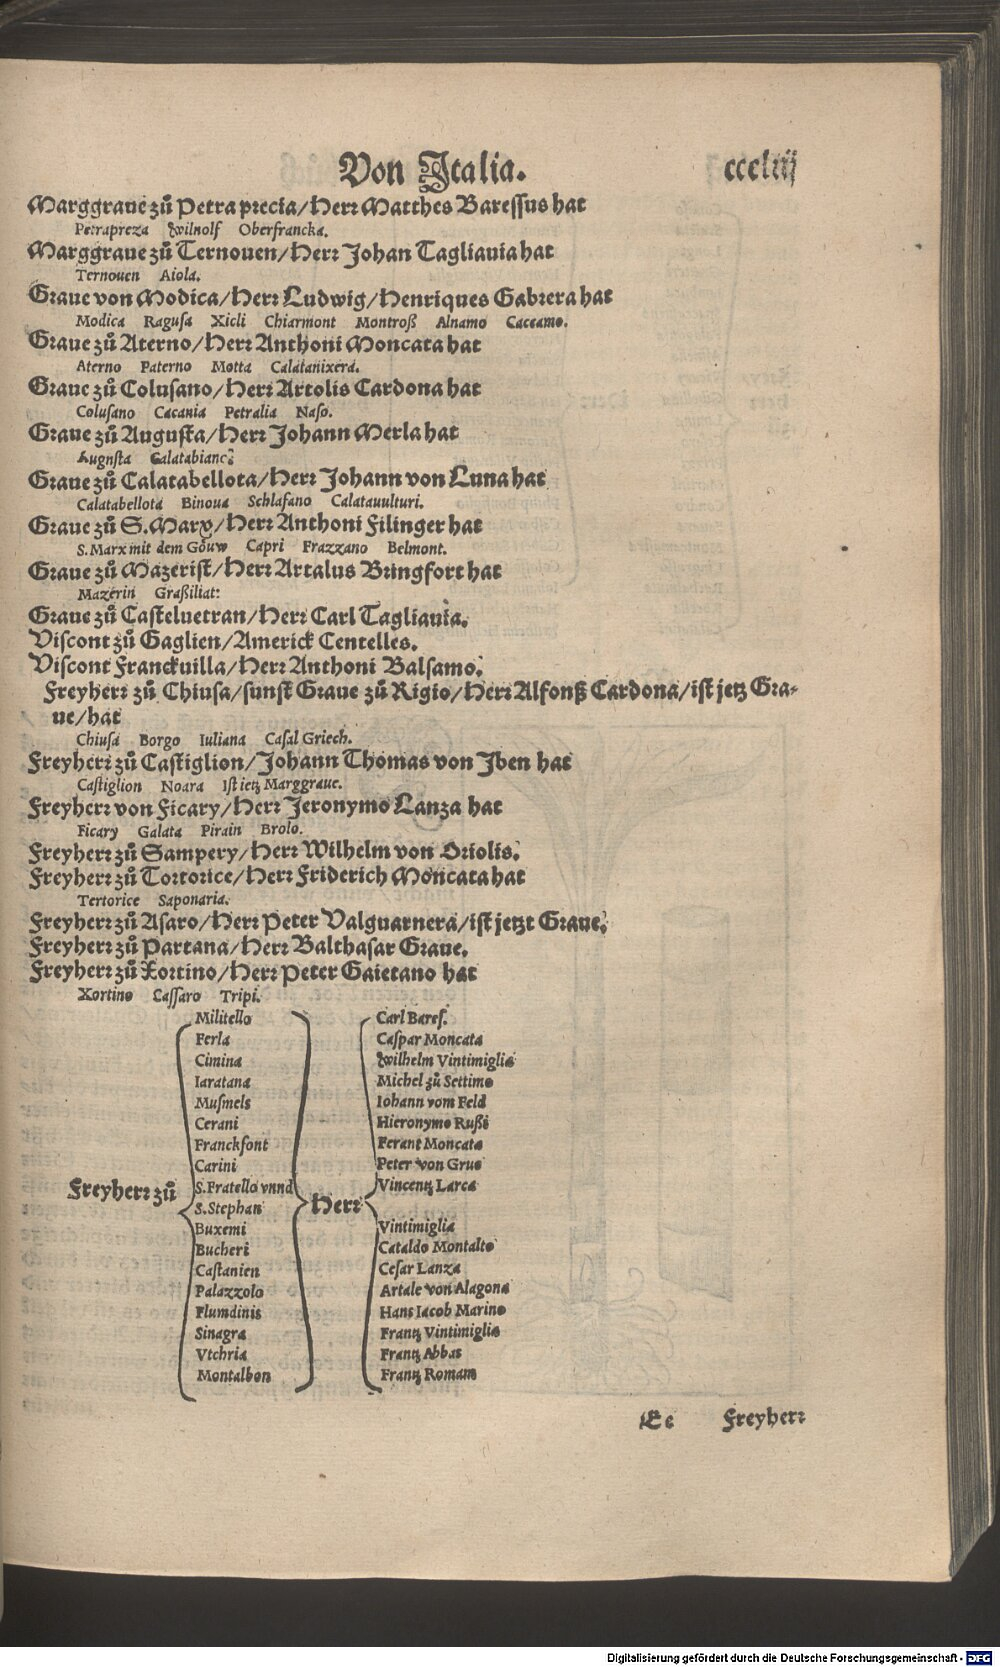 Von Italia. cccliij
Marggraue zů Petra precia/Herr Matthes Baressus hat
Petrapreza Wilnolf Oberfrancka.
Marggraue zů Ternouen/Herr Johan Tagliauia hat
Ternouen Aiola.
Graue von Modica/Herr Ludwig/Henriques Gabrera hat
Modica Ragusa Xicli Chiarmont Montroß Alnamo Caccamo.
Graue zů Aterno/Herr Anthoni Moncata hat
Aterno Paterno Motta Calatanixera.
Graue zů Colusano/Herr Artolis Cardona hat
Colusano Cacania Petralia Naso.
Graue zů Augusta/Herr Johann Merla hat
Augnsta Calatabianc:
Graue zů Calatabellota/Herr Johann von Luna hat
Calatabellota Binoua Schlafano Calatauulturi.
Graue zů S.Marx/Herr Anthoni Filinger hat
S.Marx mit dem Göuw Capri Frazzano Belmont.
Graue zů Mazerist/Herr Artalus Bringfort hat
Mazerin Graßiliat:
Graue zů Casteluetran/Herr Carl Tagliauia.
Viscont zů Gaglien/Americk Centelles.
Viscont Franckuilla/Herr Anthoni Balsamo.
Freyherr zů Chiusa/sunst Graue zů Rigio/Herr Alfonß Cardona/ist jetz Gra-
ue/hat
Chiusa Borgo Iuliana Casal Griech.
Freyherr zů Castiglion/Johann Thomas von Jben hat
Castiglion Noara Ist ietz Marggraue.
Freyherr von Ficary/Herr Jeronymo Lanza hat
Ficary Galata Pirain Brolo.
Freyherr zů Sampery/Herr Wilhelm von Oriolis.
Freyherr zů Tortorice/Herr Friderich Moncata hat
Tertorice Saponaria.
Freyherr zů Asaro/Herr Peter Valguarnera/ist jetzt Graue.
Freyherr zů Partana/Herr Balthasar Graue.
Freyherr zů Xortino/Herr Peter Gaietano hat
Xortino Cassaro Tripi.
Militello Carl Bares.
Ferla Caspar Moncata
Cimina Wilhelm Vintimiglia
Iaratana Michel zů Settimo
Musmels Iohann vom Feld
Cerani Hieronymo Rußi
Franckfont Ferant Moncata
Carini Peter von Grue
Freyherr zů S.Fratello vnnd Herr Vincentz Larca
S.Stephan
Buxemi Vintimiglia
Bucheri Cataldo Montalto
Castanien Cesar Lanza
Palazzolo Artale von Alagona
Flumdinis Hans Iacob Marino
Sinagra Frantz Vintimiglia
Vtchria Frantz Abbas
Montalbon Frantz Romam
Ee Freyherr
Digitalisierung gefördert durch die Deutsche Forschungsgemeinschaft - DFG